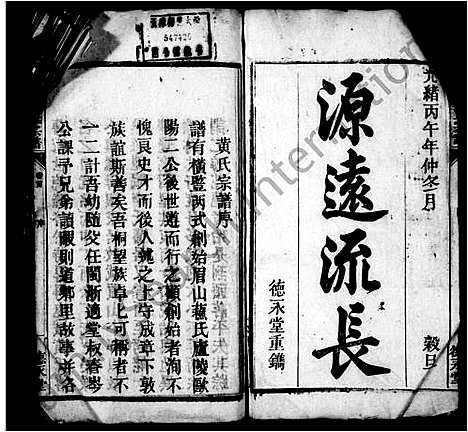 光緒丙午年仲冬月
穀旦
源遠流長
德永堂重鐫
547420
黃氏宗譜序
譜有橫豎兩式創始眉山蘇氏廬陵歐
陽二公後世遵而行之顧創始者洵不
愧良史才而後人繼之上守成章下敦
族誼斯善矣吾桐望族卓卓可稱者不
一二計吾幼隨父任閩浙適堂叔春岑
公課予兄弟讀暇則道鄉里故事班名
德永堂